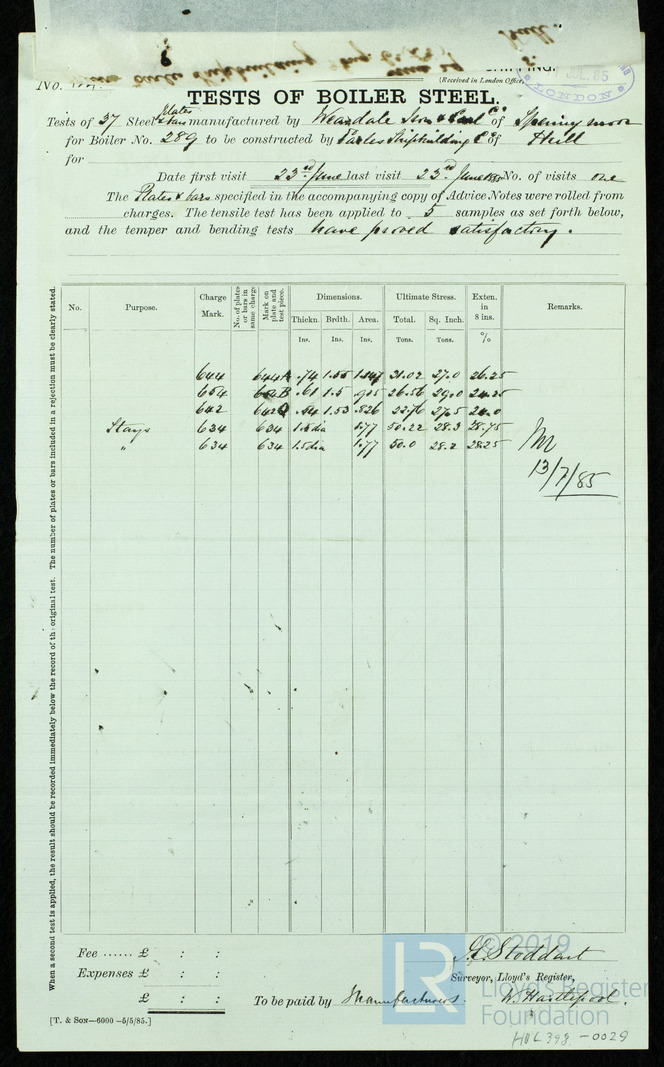 Hull.
(Received in London Office,
JUL. 85
LONDON
No.
TESTS OF BOILER STEEL.
Tests of 37 Steel Plates & bars manufactured by Weardale Iron & Coal Co. of Spennymoor
for Boiler No. 289 to be constructed by Earles Shipbuilding Co. of Hull
for
Date first visit 23rd June last visit 23rd June 1885 No. of visits one
The Plates & bars specified in the accompanying copy of Advice Notes were rolled from
charges. The tensile test has been applied to 5 samples as set forth below,
and the temper and bending tests have proved satisfactory.
No. Purpose. Charge Mark. No. of plates or bars in same charge Mark on plate and test piece. Dimensions. Ultimate Stress. Exten. in 8 ins. Remarks.
Thickn. Brdth. Area. Total. Sq. Inch.
Ins. Ins. Ins. Tons. Tons. %
644 .74 1.55 1.147 31.02 27.0 26.25
654 654B .61 1.5 .915 26.56 29.0 24.25
642 .54 1.53 .826 27.5 24.0
Stays 634 634 1.5 dia 1.77 50.22 28.3 28.75
" 634 634 1.5 dia 1.77 50.0 28.2 28.25
13/7/85
When a second test is applied, the result should be recorded immediately below the record of the original test. The number of plates or bars included in a rejection must be clearly stated.
Fee ...... £ : :
Expenses £ : :
£ : :
To be paid by Manufacturers.
Stoddart
Surveyor, Lloyd's Register,
W. Hartlepool.
[T. & SON—6000—5/5/85.]
LR
© 2019
Lloyd's Register
Foundation
HUL398-0029